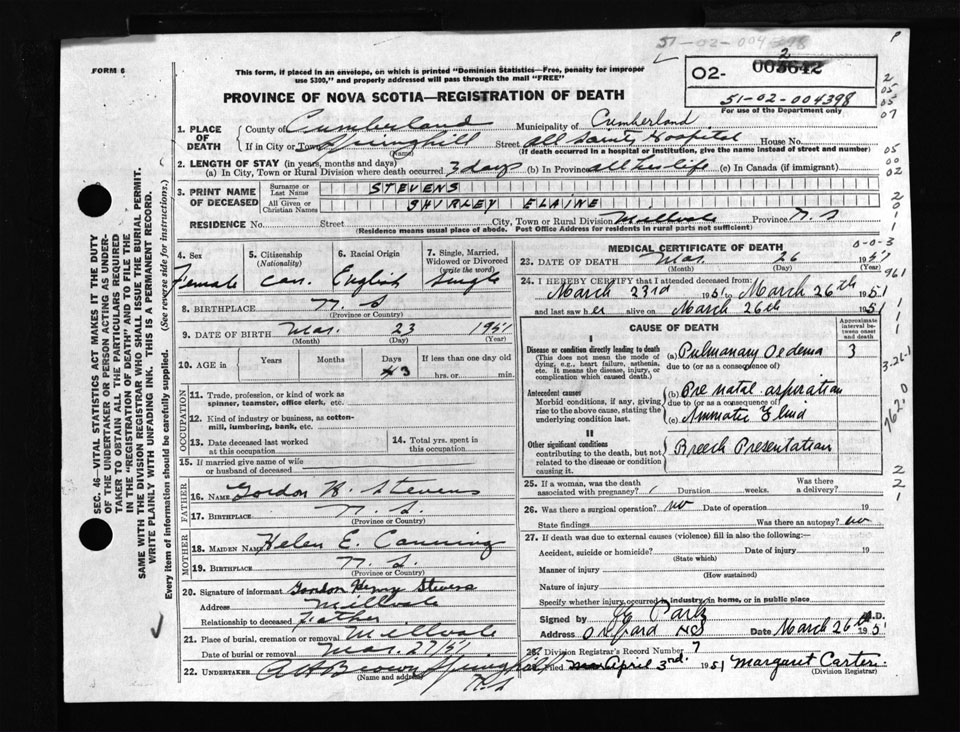 51-02-004398
FORM 6
This form, if placed in an envelope, on which is printed "Dominion Statistics—Free, penalty for improper
use $300," and properly addressed will pass through the mail "FREE"
02- 002642
51-02-004398
For use of the Department only
PROVINCE OF NOVA SCOTIA—REGISTRATION OF DEATH
1. PLACE OF DEATH
County of Cumberland Municipality of Cumberland
If in City or Town Springhill Street All Saints Hospital House No.
(Name) (If death occurred in a hospital or institution, give the name instead of street and number)
2. LENGTH OF STAY (in years, months and days)
(a) In City, Town or Rural Division where death occurred. 3 days (b) In Province all her life (c) In Canada (if immigrant)
3. PRINT NAME OF DECEASED
Surname or Last Name STEVENS
All Given or Christian Names SHIRLEY ELAINE
RESIDENCE No. Street City, Town or Rural Division Millvale Province N.S
(Residence means usual place of abode. Post Office Address for residents in rural parts not sufficient)
4. Sex Female
5. Citizenship (Nationality) Can.
6. Racial Origin English
7. Single, Married, Widowed or Divorced (write the word) Single
8. BIRTHPLACE N.S
(Province or Country)
9. DATE OF BIRTH Mar. 23 1951
(Month) (Day) (Year)
10. AGE in Years Months Days 3 If less than one day old
hrs. or min.
OCCUPATION
11. Trade, profession, or kind of work as spinner, teamster, office clerk, etc.
12. Kind of industry or business, as cotton-mill, lumbering, bank, etc.
13. Date deceased last worked at this occupation
14. Total yrs. spent in this occupation
15. If married give name of wife or husband of deceased
FATHER
16. NAME Gordon H. Stevens
17. BIRTHPLACE N.S.
(Province or Country)
MOTHER
18. MAIDEN NAME Helen E. Canning
19. BIRTHPLACE N.S.
(Province or Country)
20. Signature of informant Gordon Henry Stevens
Address Millvale
Relationship to deceased Father
21. Place of burial, cremation or removal Millvale
Date of burial or removal Mar. 27/51
22. UNDERTAKER Brown Springhill
(Name and address) N.S
MEDICAL CERTIFICATE OF DEATH
23. DATE OF DEATH Mar. 26 1951
(Month) (Day) (Year)
24. I HEREBY CERTIFY that I attended deceased from
March 23rd 1951 to March 26th 1951
and last saw her alive on March 26th 1951
CAUSE OF DEATH
Approximate interval between onset and death
I
Disease or condition directly leading to death
(This does not mean the mode of dying, e.g., heart failure, asthenia, etc. It means the disease, injury, or complication which caused death.)
(a) Pulmonary Oedema 3
due to (or as a consequence of)
Antecedent causes
Morbid conditions, if any, giving rise to the above cause, stating the underlying condition last.
(b) Pre natal aspiration
due to (or as a consequence of)
(c) Amniotic Fluid
II
Other significant conditions
contributing to the death, but not related to the disease or condition causing it.
Breech Presentation
25. If a woman, was the death associated with pregnancy? Duration weeks. Was there a delivery?
26. Was there a surgical operation? no Date of operation 19
State findings Was there an autopsy? no
27. If death was due to external causes (violence) fill in also the following:
Accident, suicide or homicide? Date of injury 19
(State which)
Manner of injury
(How sustained)
Nature of injury
Specify whether injury occurred in industry, in home, or in public place
Signed by M.D.
Address Oxford NS Date March 26th 1951
28. Division Registrar's Record Number 7
Filed April 3rd. 1951 Margaret Carter
(Division Registrar)
SEC. 46—VITAL STATISTICS ACT MAKES IT THE DUTY
OF THE UNDERTAKER OR PERSON ACTING AS UNDER-
TAKER TO OBTAIN ALL THE PARTICULARS REQUIRED
IN THE "REGISTRATION OF DEATH" AND TO FILE THE
SAME WITH THE DIVISION REGISTRAR WHO SHALL ISSUE THE BURIAL PERMIT.
WRITE PLAINLY WITH UNFADING INK. THIS IS A PERMANENT RECORD.
Every item of information should be carefully supplied. (See reverse side for instructions.)
2
05
07
05
00
02
2
0
1
1
0-0-3
961
1
1
1
3-26-1
762.0
2
2
1